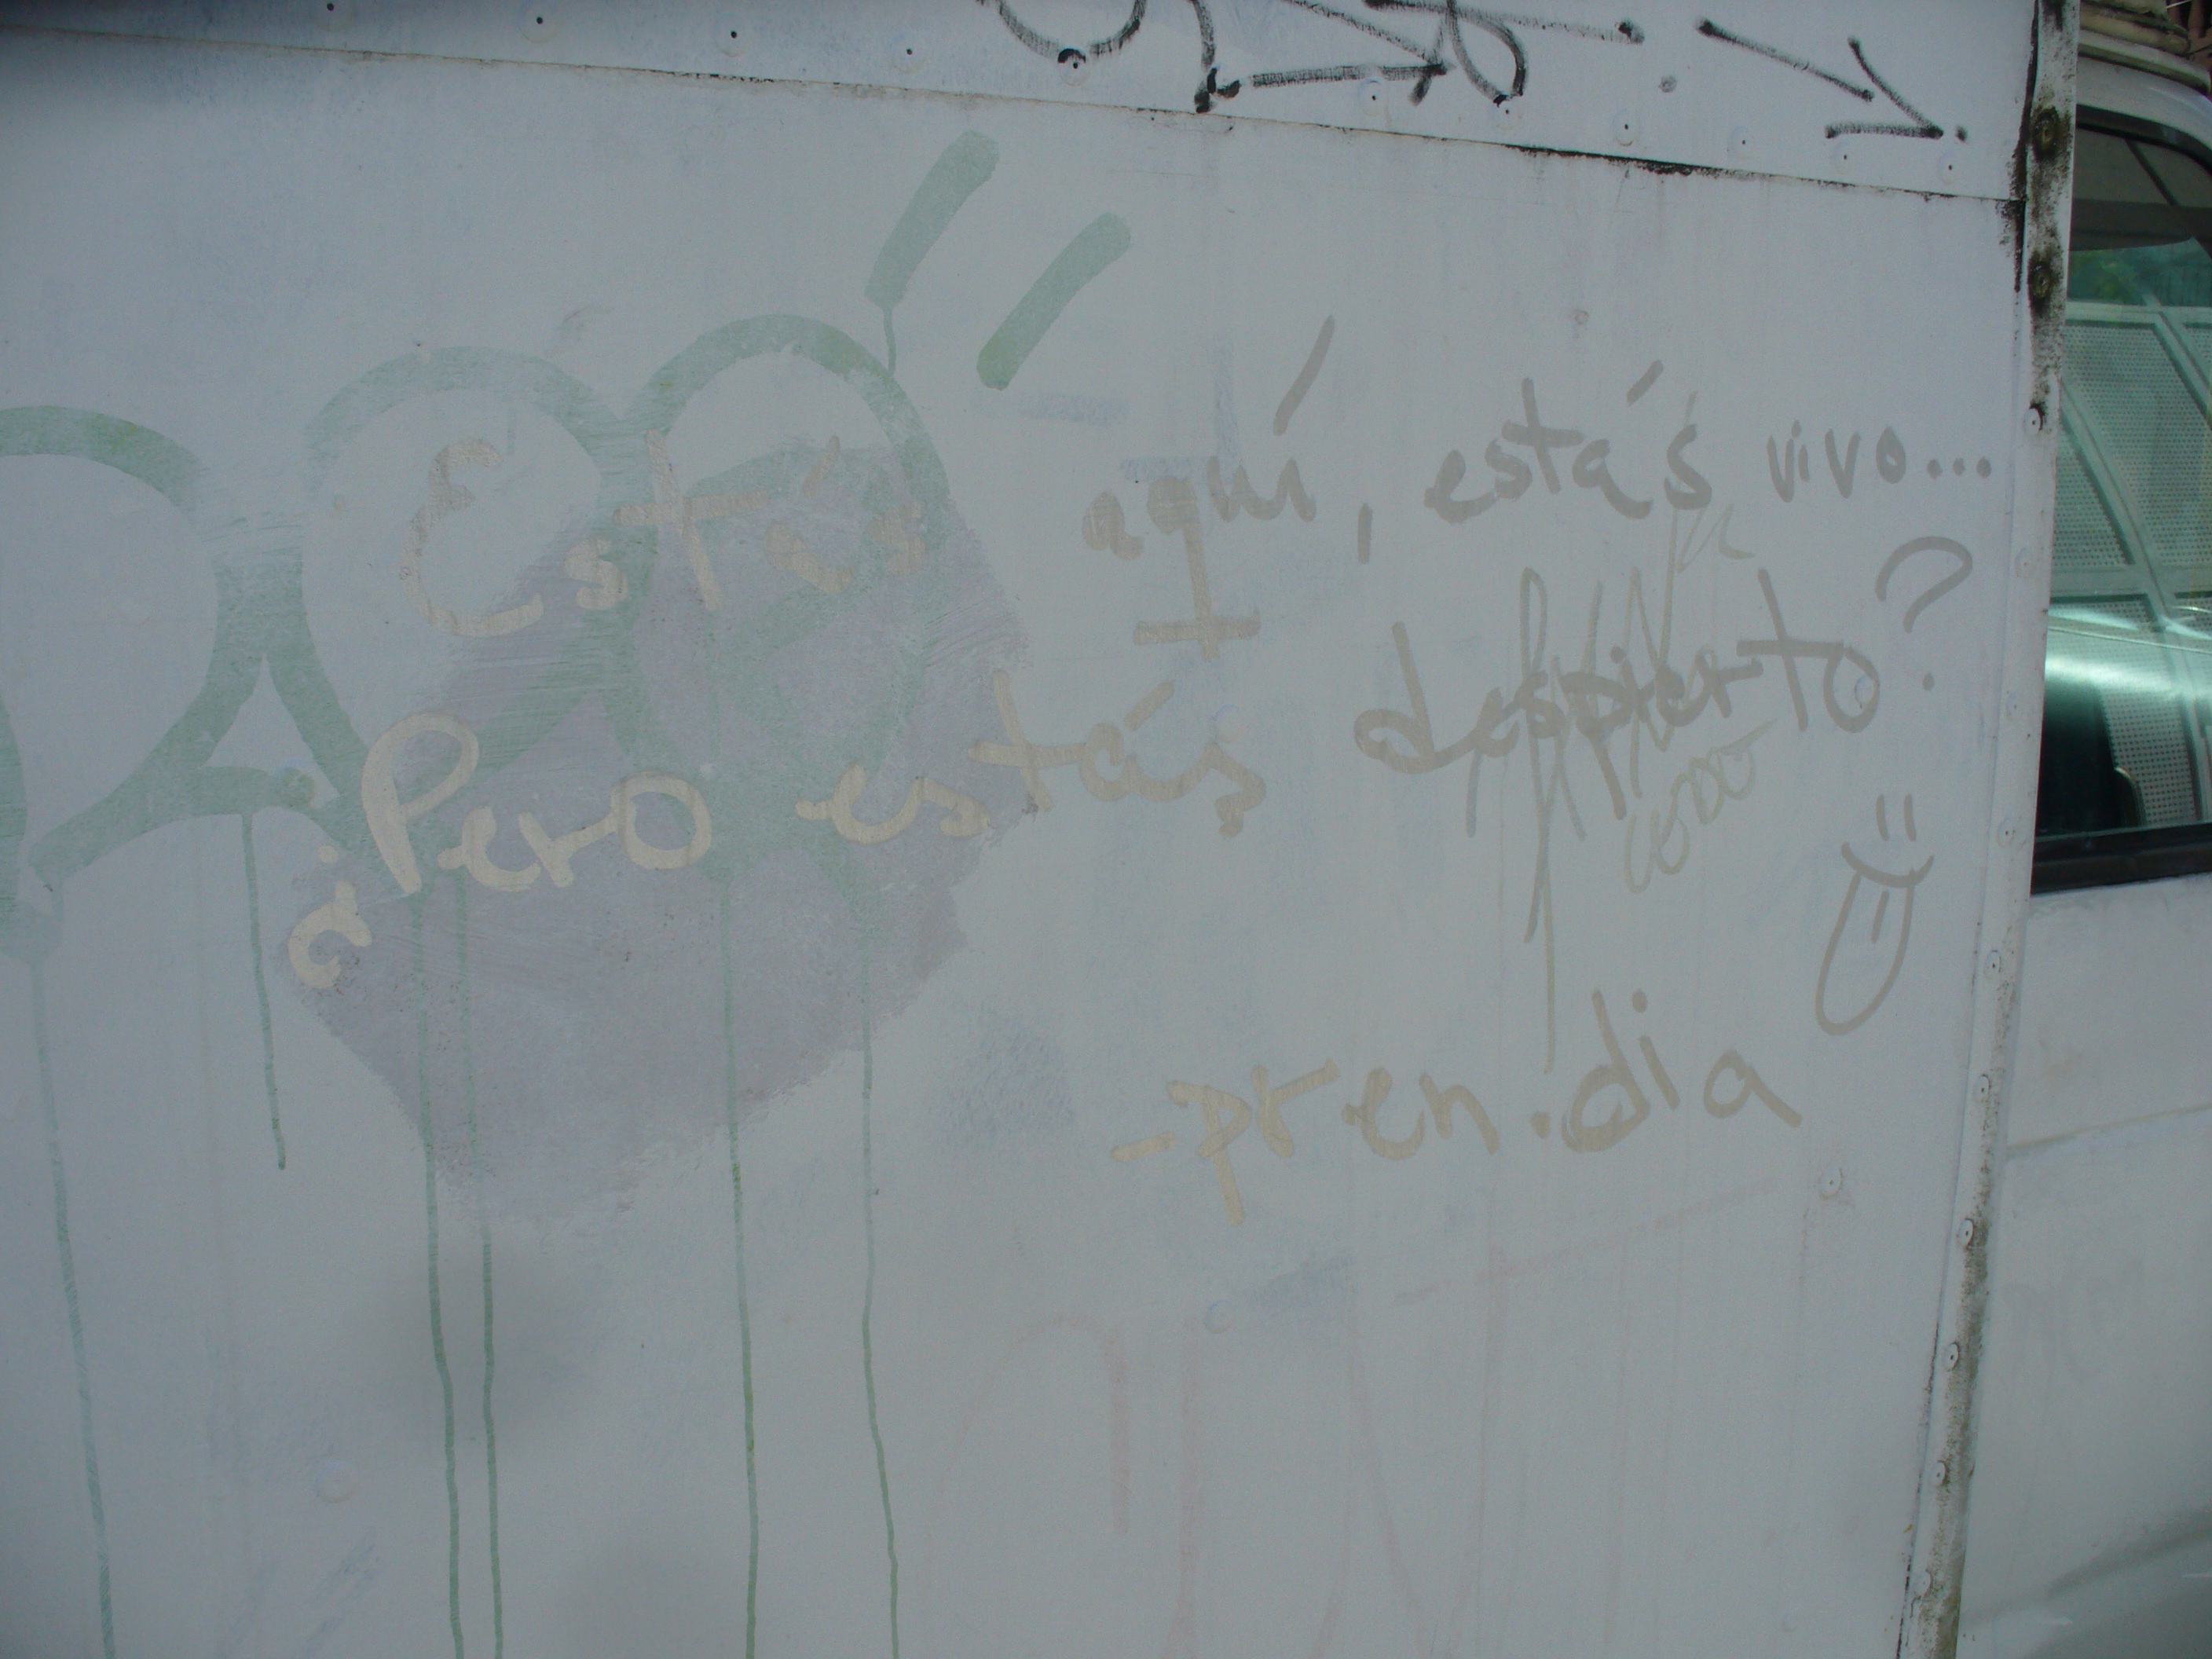 Estás aquí, estás vivo...
¿Pero estás despierto?
-pren.dia